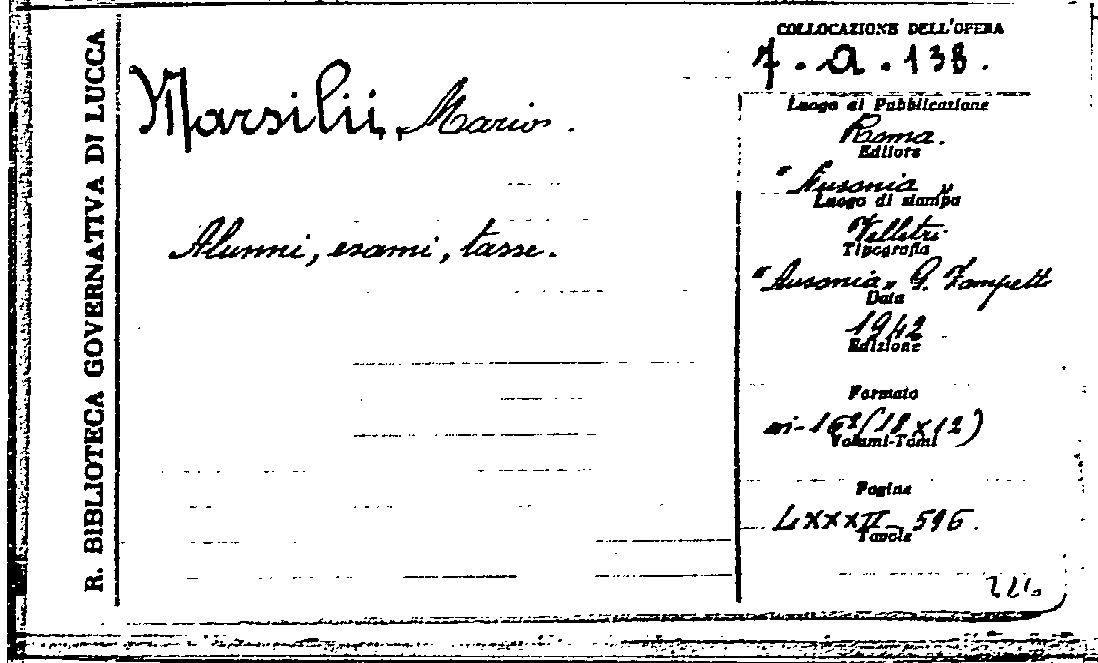 R. BIBLIOTECA GOVERNATIVA DI LUCCA
Marsilii, Mario.
Alunni, esami, tasse.
COLLOCAZIONE DELL'OPERA
7. a. 138.
Luogo di Pubblicazione
Roma.
Editore
"Ausonia"
Luogo di stampa
Velletri
Tipografia
"Ausonia" G. Zampetti
Data
1942
Edizione
Formato
in-16º (18 x 12)
Volumi-Tomi
Pagine
LXXXII-596.
Tavole